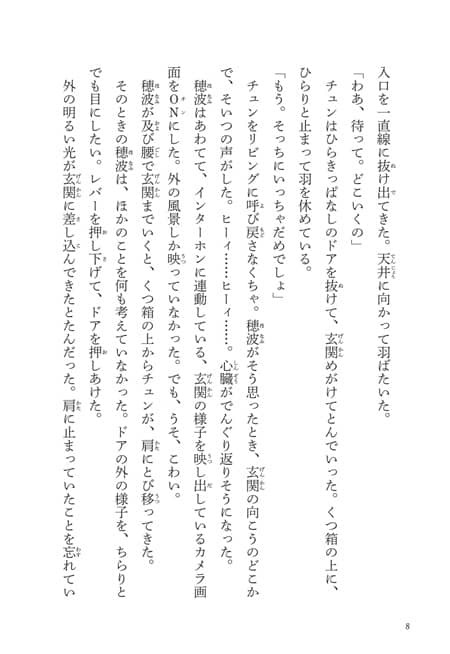 入口を一直線に抜け出てきた。天井に向かって羽ばたいた。
「わあ、待って。どこいくの」
チュンはひらきっぱなしのドアを抜けて、玄関めがけてとんでいった。くつ箱の上に、
ひらりと止まって羽を休めている。
「もう。そっちにいっちゃだめでしょ」
チュンをリビングに呼び戻さなくちゃ。穂波がそう思ったとき、玄関の向こうのどこか
で、そいつの声がした。ヒーィ……ヒーィ……。心臓がでんぐり返りそうになった。
穂波はあわてて、インターホンに連動している、玄関の様子を映し出しているカメラ画
面をＯＮにした。外の風景しか映っていなかった。でも、うそ、こわい。
穂波が及び腰で玄関までいくと、くつ箱の上からチュンが、肩にとび移ってきた。
そのときの穂波は、ほかのことを何も考えていなかった。ドアの外の様子を、ちらりと
でも目にしたい。レバーを押し下げて、ドアを押しあけた。
外の明るい光が玄関に差し込んできたとたんだった。肩に止まっていたことを忘れてい
8